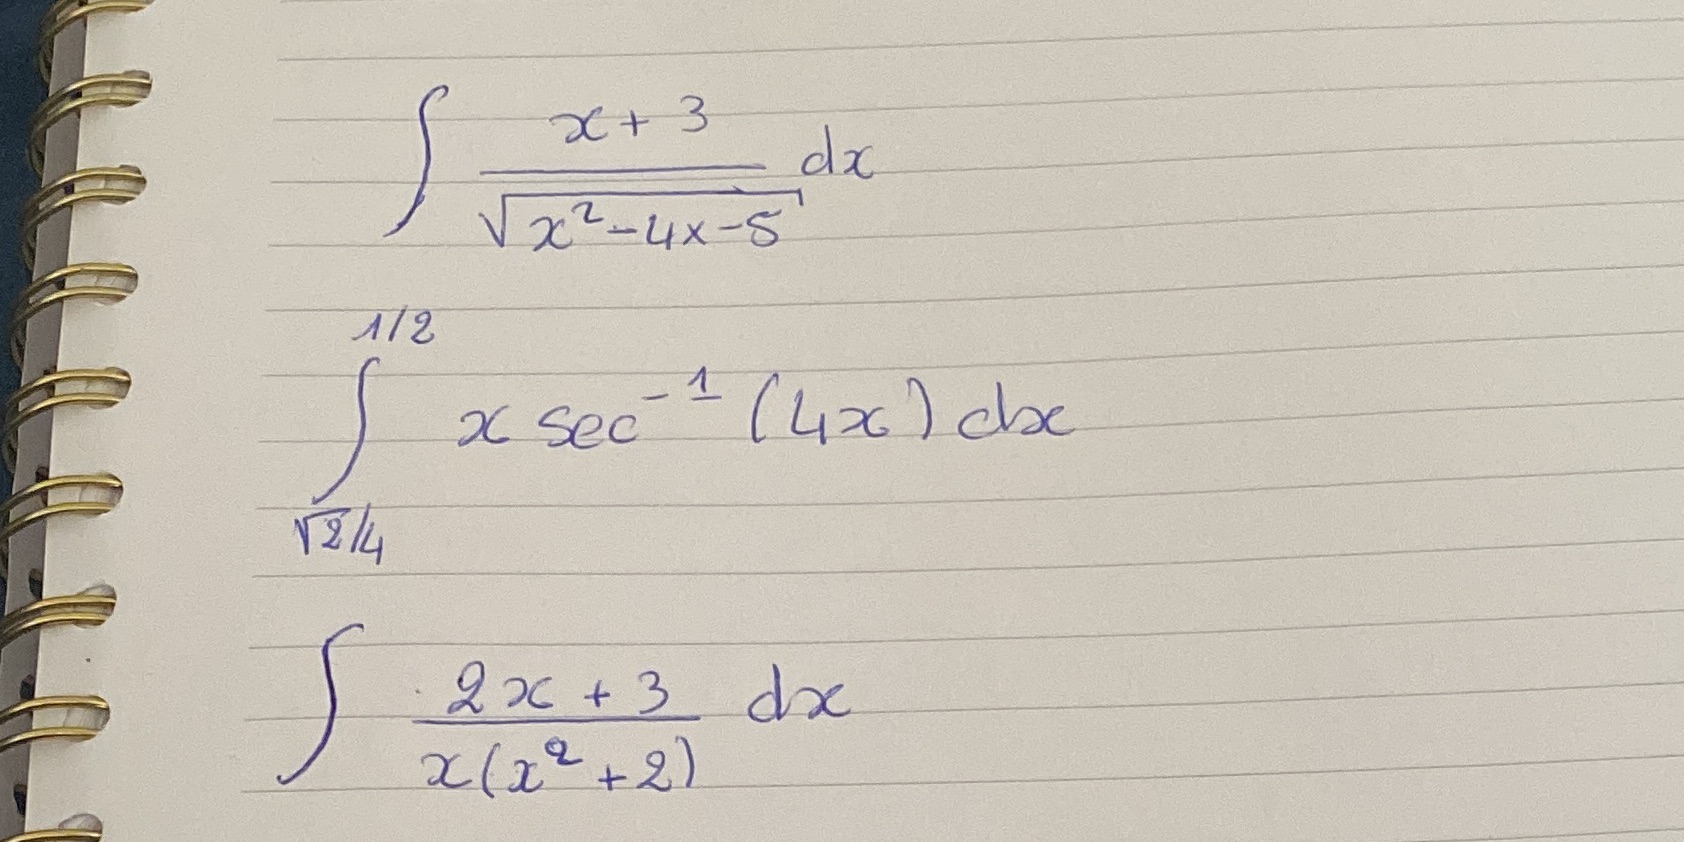 ∫ (x + 3)/√(x² - 4x - 5) dx
∫_{√2/4}^{1/2} x sec⁻¹ (4x) dx
∫ (2x + 3)/(x(x² + 2)) dx